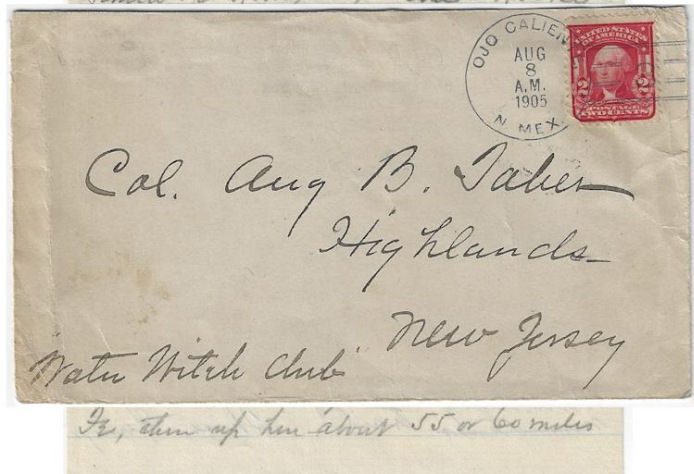 OJO CALIEN
AUG
8
A.M.
1905
N. MEX.
UNITED STATES
OF AMERICA
2 2
POSTAGE
TWO CENTS
Col. Aug B. Taber
Highlands
New Jersey
"Water Witch Club"
Fe, then up here about 55 or 60 miles